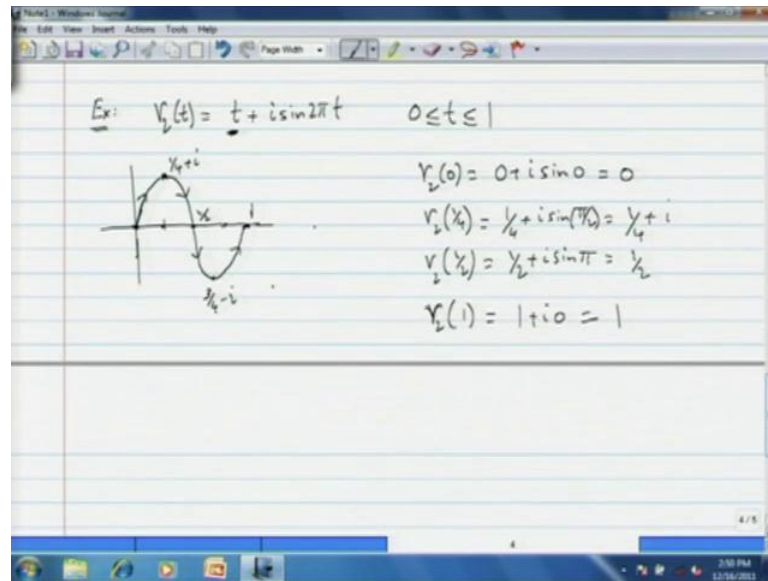 Note1 - Windows Journal
File Edit View Insert Actions Tools Help
Page Width
Ex: γ₂(t) = t + i sin 2πt 0 ≤ t ≤ 1
¼+i
½
1
¾-i
γ₂(0) = 0 + i sin 0 = 0
γ₂(¼) = ¼ + i sin(π/2) = ¼ + i
γ₂(½) = ½ + i sin π = ½
γ₂(1) = 1 + i0 = 1
4/5
4
2:50 PM
12/16/2011